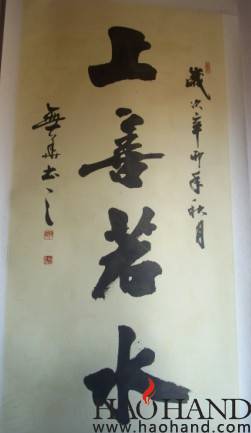 歲次辛卯年秋月
上善若水
無華書
HAOHAND
www.haohand.com